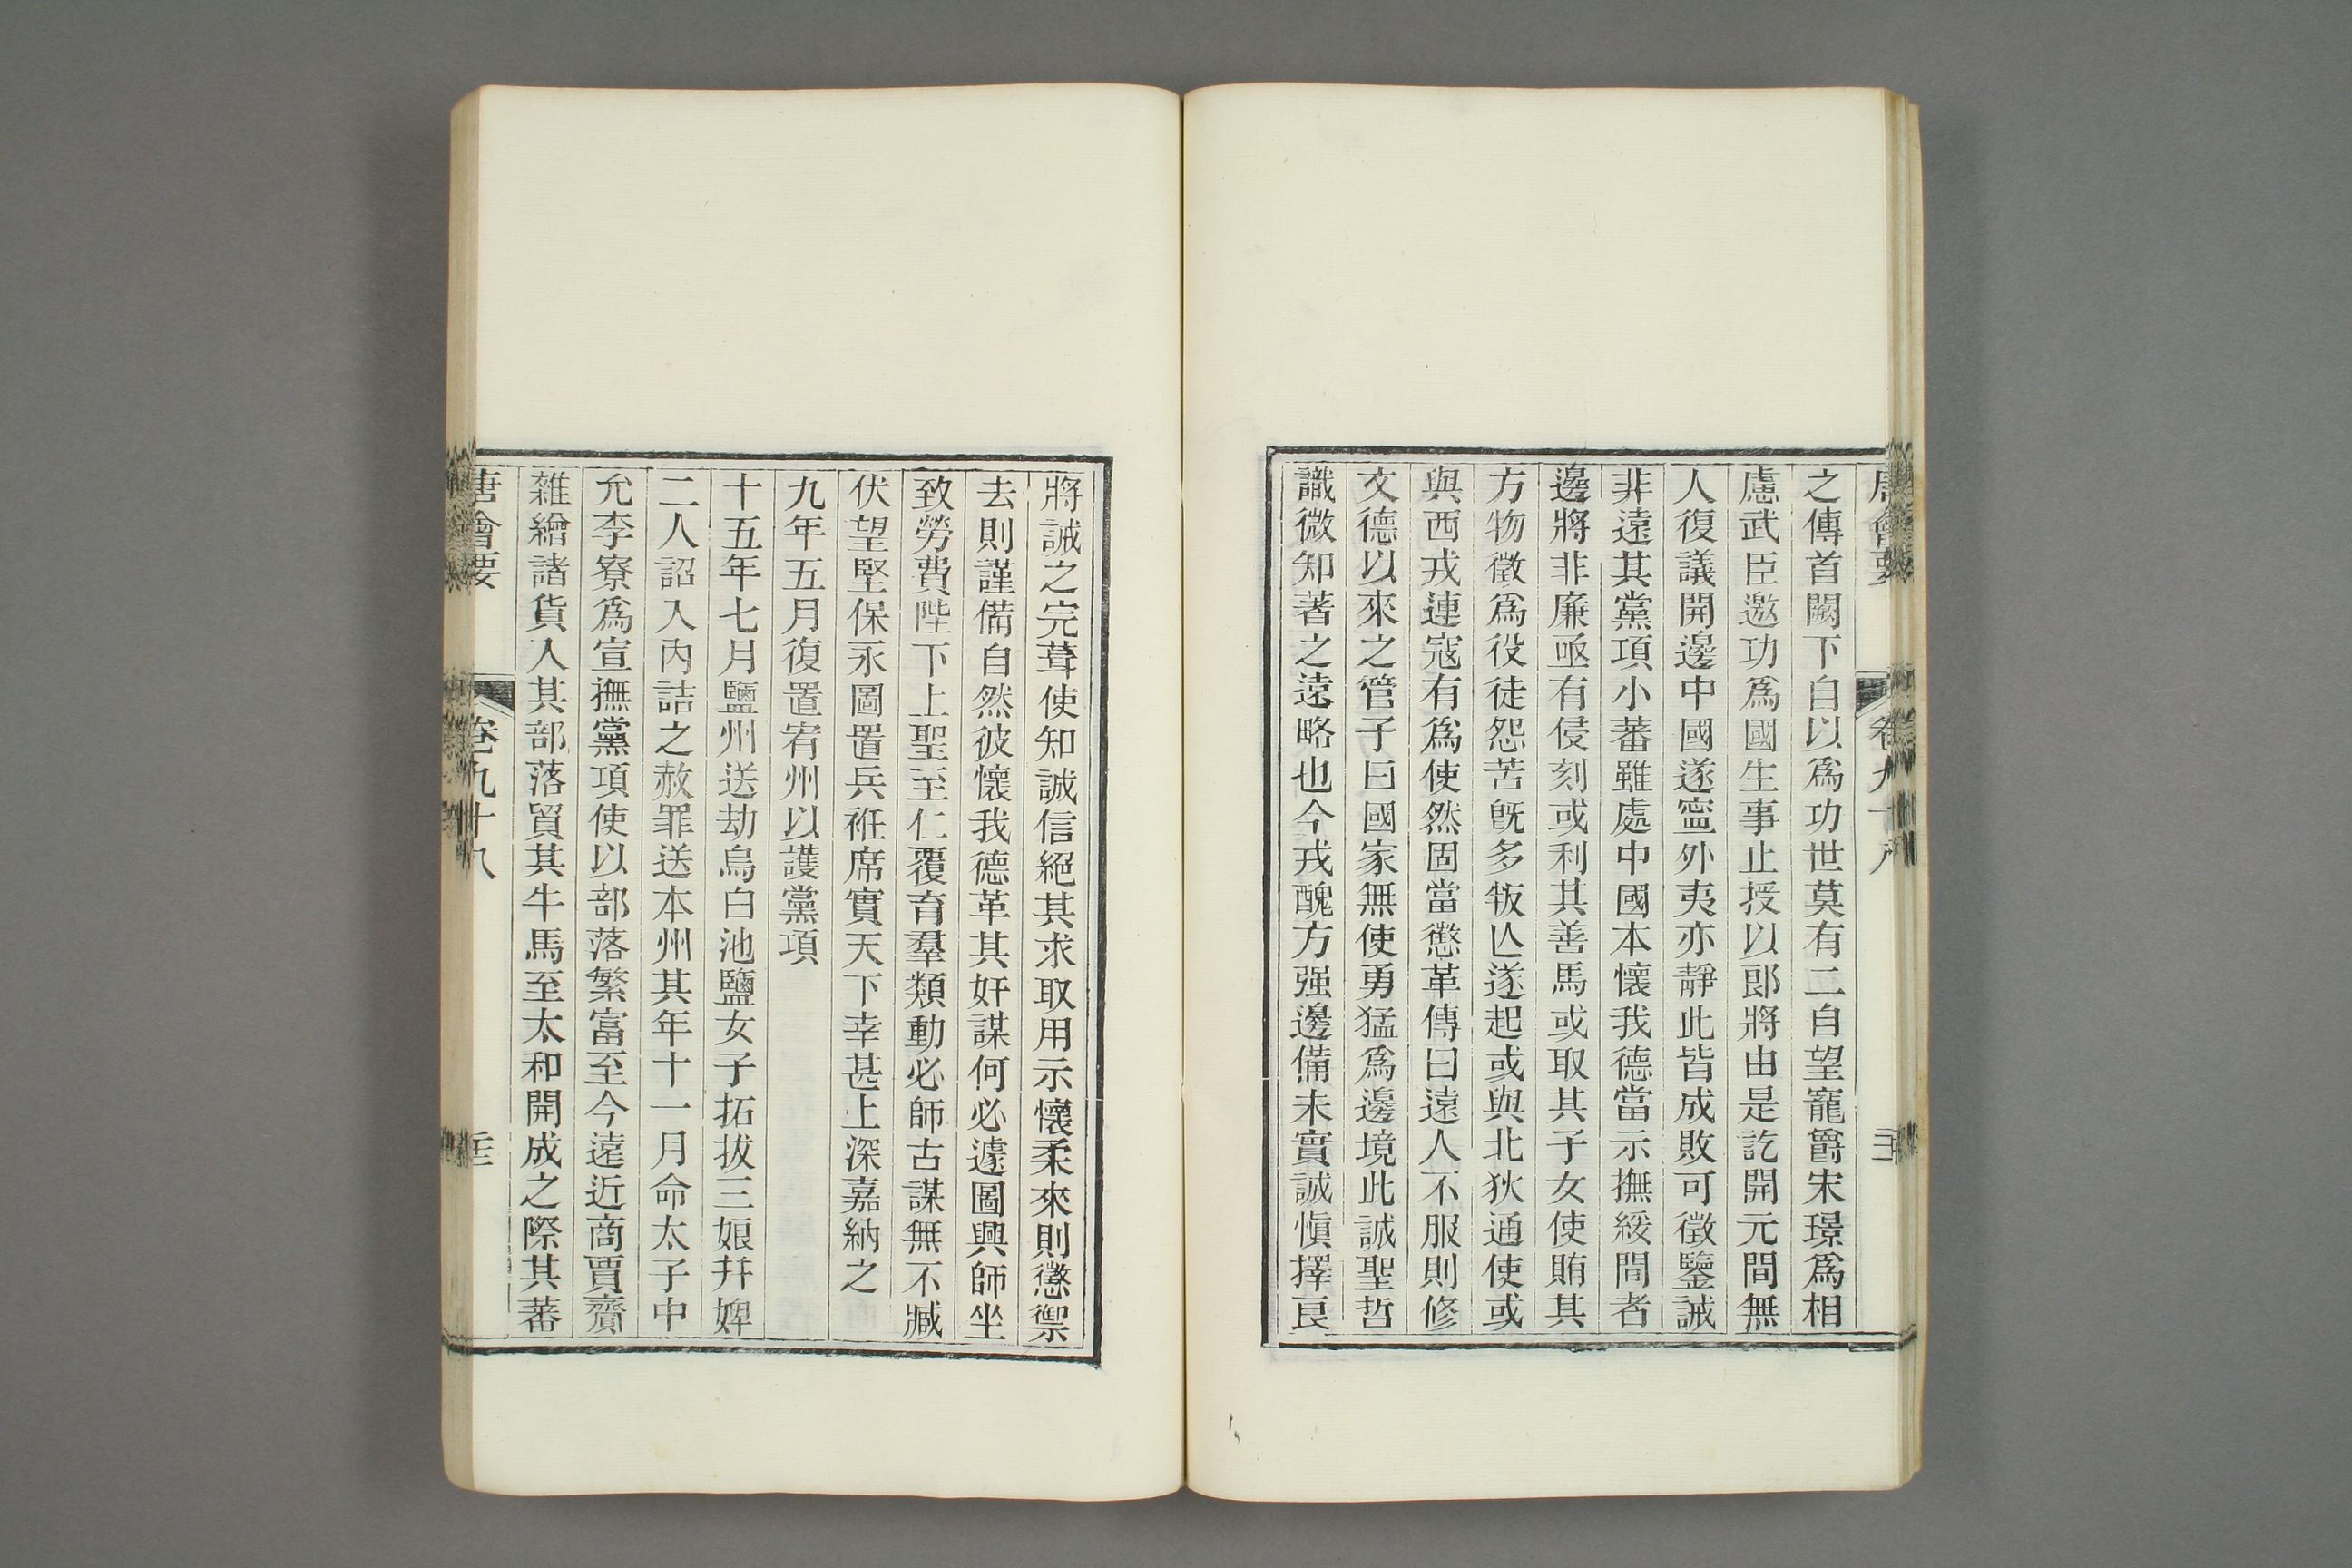 唐會要 卷九十八
之傳首闕下自以爲功世莫有二自望寵爵宋璟爲相
慮武臣邀功爲國生事止授以郎將由是訖開元間無
人復議開邊中國遂寍外夷亦靜此皆成敗可徵鑒誡
非遠其黨項小蕃雖處中國本懷我德當示撫綏間者
邊將非廉亟有侵刻或利其善馬或取其子女使賄其
方物徵爲役徒怨苦旣多叛亾遂起或與北狄通使或
與西戎連寇有爲使然固當懲革傳曰遠人不服則修
文德以來之管子曰國家無使勇猛爲邊境此誠聖哲
識微知著之遠略也今戎醜方强邊備未實誠愼擇良
將誡之完葺使知誠信絕其求取用示懷柔來則懲禦
去則謹備自然彼懷我德革其奸謀何必遽圖興師坐
致勞費陛下上聖至仁覆育羣類動必師古謀無不臧
伏望堅保永圖置兵袵席實天下幸甚上深嘉納之
九年五月復置宥州以護黨項
十五年七月鹽州送劫烏白池鹽女子拓拔三娘幷婢
二人詔入內詰之赦罪送本州其年十一月命太子中
允李寮爲宣撫黨項使以部落繁富至今遠近商賈齎
雜繒諸貨入其部落貿其牛馬至太和開成之際其蕃
唐會要 卷九十八